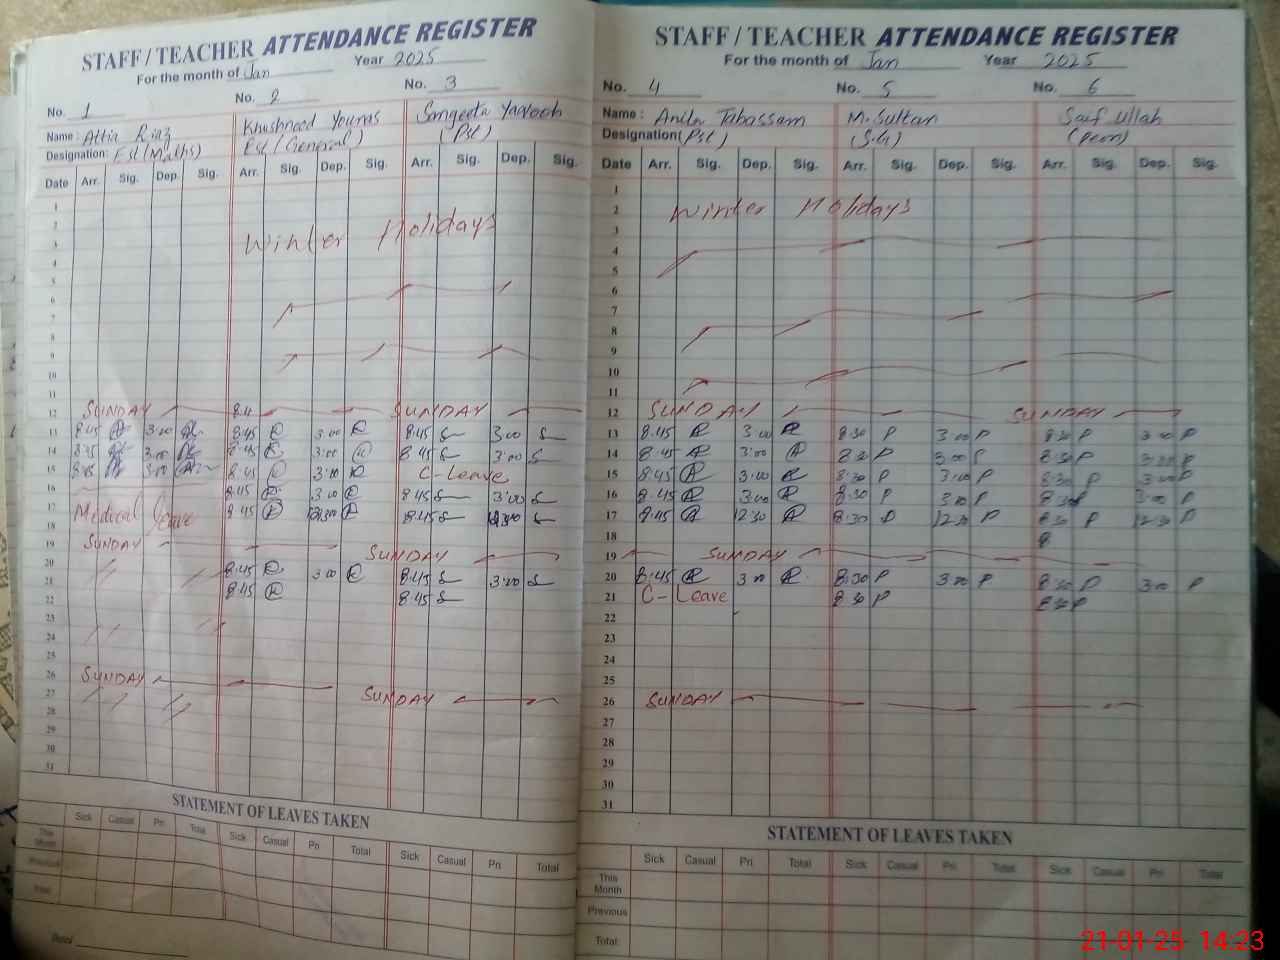 STAFF / TEACHER ATTENDANCE REGISTER
For the month of Jan Year 2025
No. 1 No. 2 No. 3
Name : Attia Riaz Khusheed Younas Sangeeta Yaqoob
Designation: Est (Maths) Est (General) (Pst)
Date Arr. Sig. Dep. Sig. Arr. Sig. Dep. Sig. Arr. Sig. Dep. Sig.
1
2
3 Winter Holidays
4
5
6
7
8
9
10
11
12 SUNDAY 8.4 SUNDAY
13 8:45 3:00 8:45 R 3:00 R 8:45 S 3:00 S
14 8:45 3:00 8:45 R 3:00 R 8:45 S 3:00 S
15 8:45 3:00 8:45 R 3:00 R C-Leave
16 8:45 R 3:00 R 8:45 S 3:00 S
17 Medical leave 8:45 R R 8:45 S S
18
19 SUNDAY SUNDAY
20 8:45 R 3:00 R 8:45 S 3:00 S
21 8:45 R 8:45 S
22
23
24
25
26 SUNDAY
27 SUNDAY
28
29
30
31
STATEMENT OF LEAVES TAKEN
Sick Casual Pri Total Sick Casual Pri Total Sick Casual Pri Total
This Month
Previous
Total
STAFF / TEACHER ATTENDANCE REGISTER
For the month of Jan Year 2025
No. 4 No. 5 No. 6
Name : Anila Tabassam M. Sultan Saif Ullah
Designation (Pst) (S.G) (Peon)
Date Arr. Sig. Dep. Sig. Arr. Sig. Dep. Sig. Arr. Sig. Dep. Sig.
1
2 Winter Holidays
3
4
5
6
7
8
9
10
11
12 SUNDAY SUNDAY
13 8:45 R 3:00 R 8:30 P 3:00 P 8:30 P 3:00 P
14 8:45 R 3:00 R 8:30 P 3:00 P 8:30 P 3:00 P
15 8:45 R 3:00 R 8:30 P 3:00 P 8:30 P 3:00 P
16 8:45 R 3:00 R 8:30 P 3:00 P 8:30 P 3:00 P
17 8:45 R 12:30 R 8:30 P 12:30 P 8:30 P 12:30 P
18 8
19 SUNDAY
20 8:45 R 3:00 R 8:30 P 3:00 P 8:30 P 3:00 P
21 C-Leave 8:30 P 8:30 P
22
23
24
25
26 SUNDAY
27
28
29
30
31
STATEMENT OF LEAVES TAKEN
Sick Casual Pri Total Sick Casual Pri Total Sick Casual Pri Total
This Month
Previous
Total
21-01-25 14:23